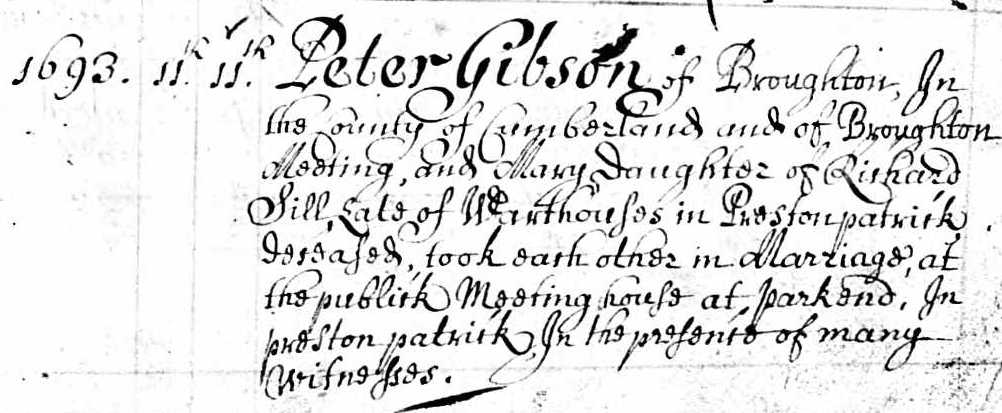 1693. 11.th 11.th Peter Gibson of Broughton, In
the County of Cumberland and of Broughton
Meeting, and Mary Daughter of Richard
Sill, Late of Warthouses in Preston patrick,
deceased, took each other in Marriage, at
the publick Meeting house at parkend, In
preston patrick, In the presence of many
Witnesses.